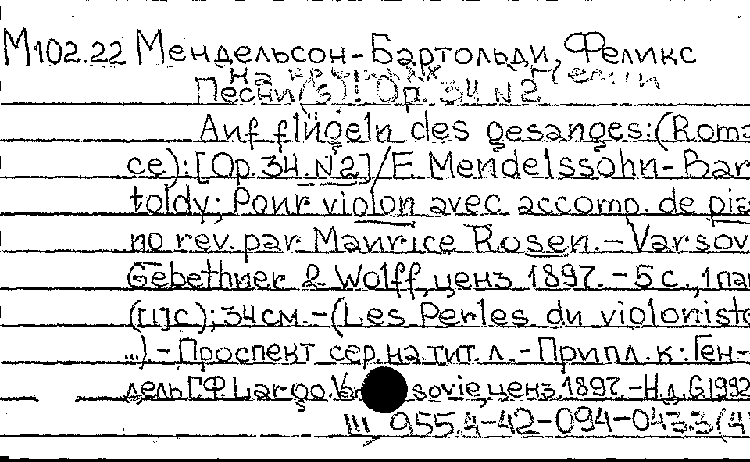 М102.22 Мендельсон-Бартольди, Феликс
На крыльях песни
Песни(з)! Op. 34 N2
Auf flügeln des gesanges:(Roma
ce):[Op. 34. N 2]/F. Mendelssohn-Bar
toldy; Pour violon avec accomp. de pia
no rev. par Maurice Rosen.-Varsov
Gebethner & Wolff, ценз 1897.-5 с., 1 пар
([1]с); 34 см.-(Les Perles du violoniste
...).-Проспект сер. на тит. л.-Припл. к: Ген-
дель Г.Ф. Largo. Varsovie, ценз. 1897.-Н.д. G1992
III 955.4-42-094-043.3(4